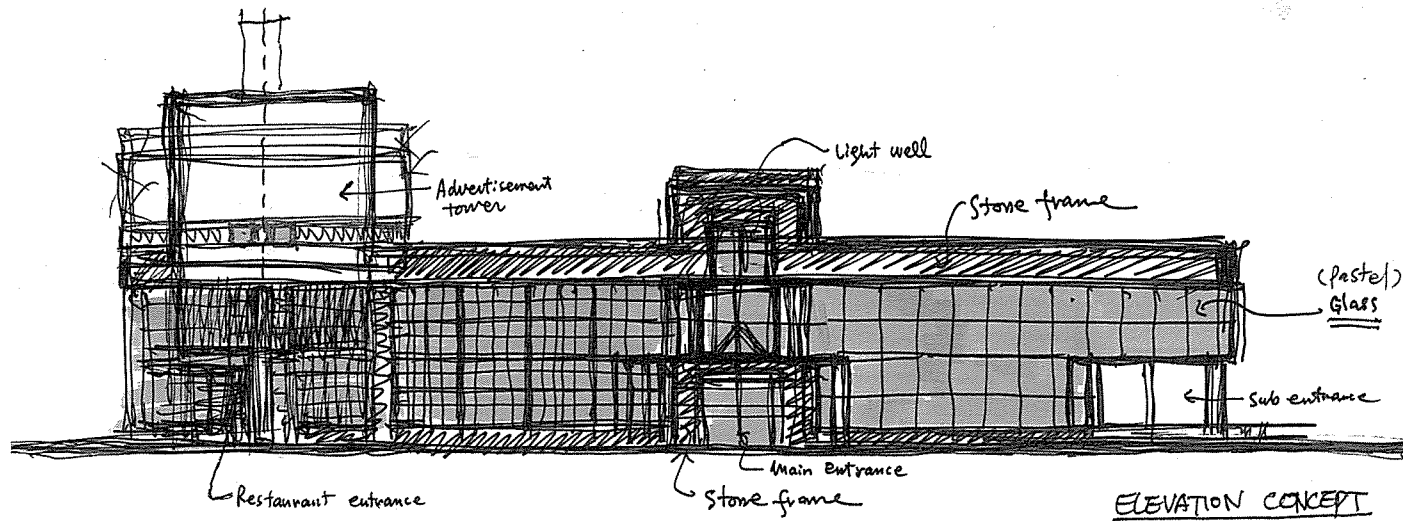 Light well
Advertisement
tower
Stone frame
(Pastel)
Glass
Sub entrance
Main entrance
Restaurant entrance
Stone frame
ELEVATION CONCEPT